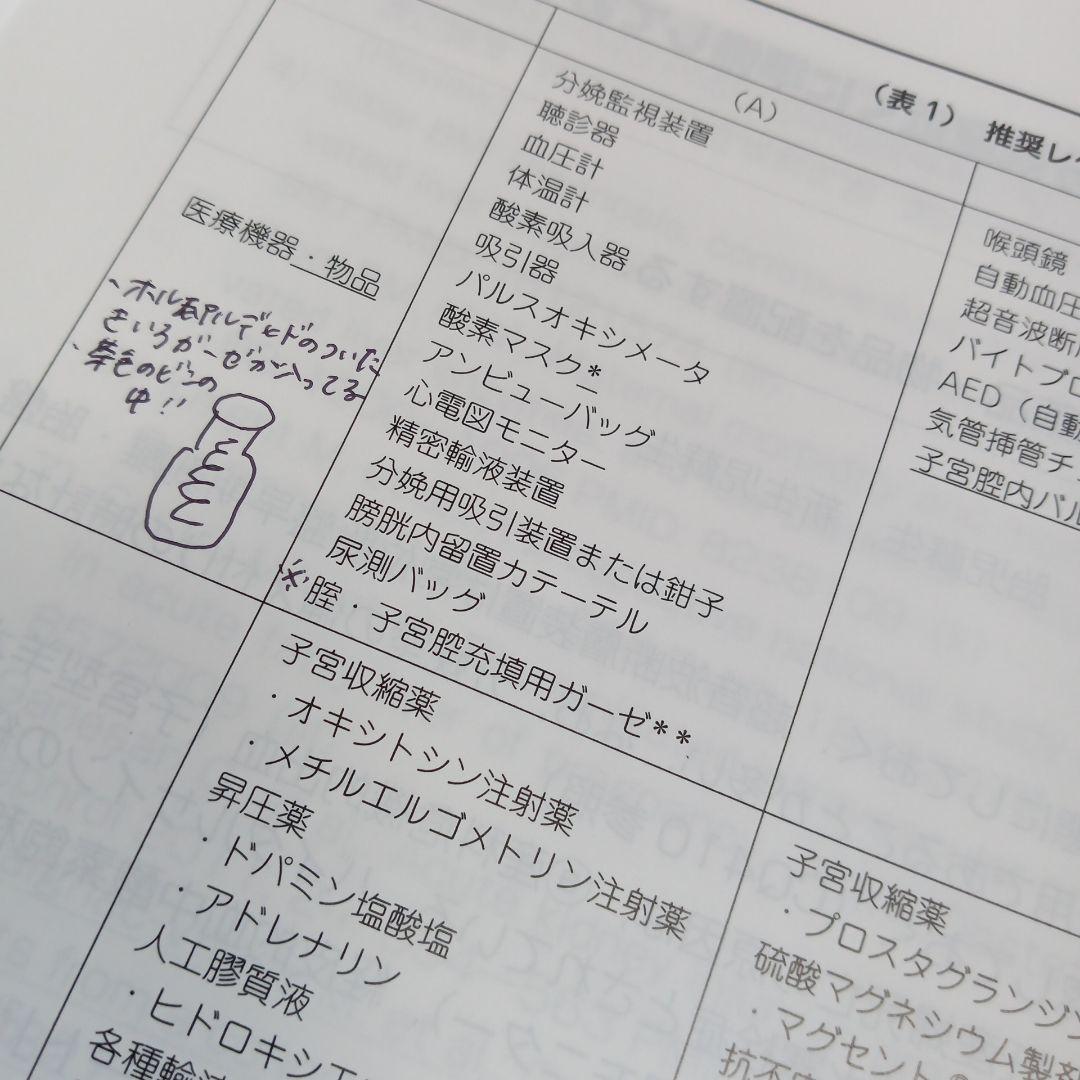 (表1) 推奨レ
(A)
医療機器・物品
、ホルムアルデヒドのついた
きいろガーゼが入ってる
、茶色のビンの
中!!
分娩監視装置
聴診器
血圧計
体温計
酸素吸入器
吸引器
パルスオキシメータ
酸素マスク*
アンビューバッグ
心電図モニター
精密輸液装置
分娩用吸引装置または鉗子
膀胱内留置カテーテル
尿測バッグ
※腟・子宮腔充填用ガーゼ**
喉頭鏡
自動血圧
超音波断
バイトブロ
AED(自動
気管挿管チ
子宮腔内バル
子宮収縮薬
・オキシトシン注射薬
・メチルエルゴメトリン注射薬
昇圧薬
・ドパミン塩酸塩
・アドレナリン
人工膠質液
・ヒドロキシエ
各種輸液
子宮収縮薬
・プロスタグランジン
硫酸マグネシウム製剤
・マグセント®
抗不安